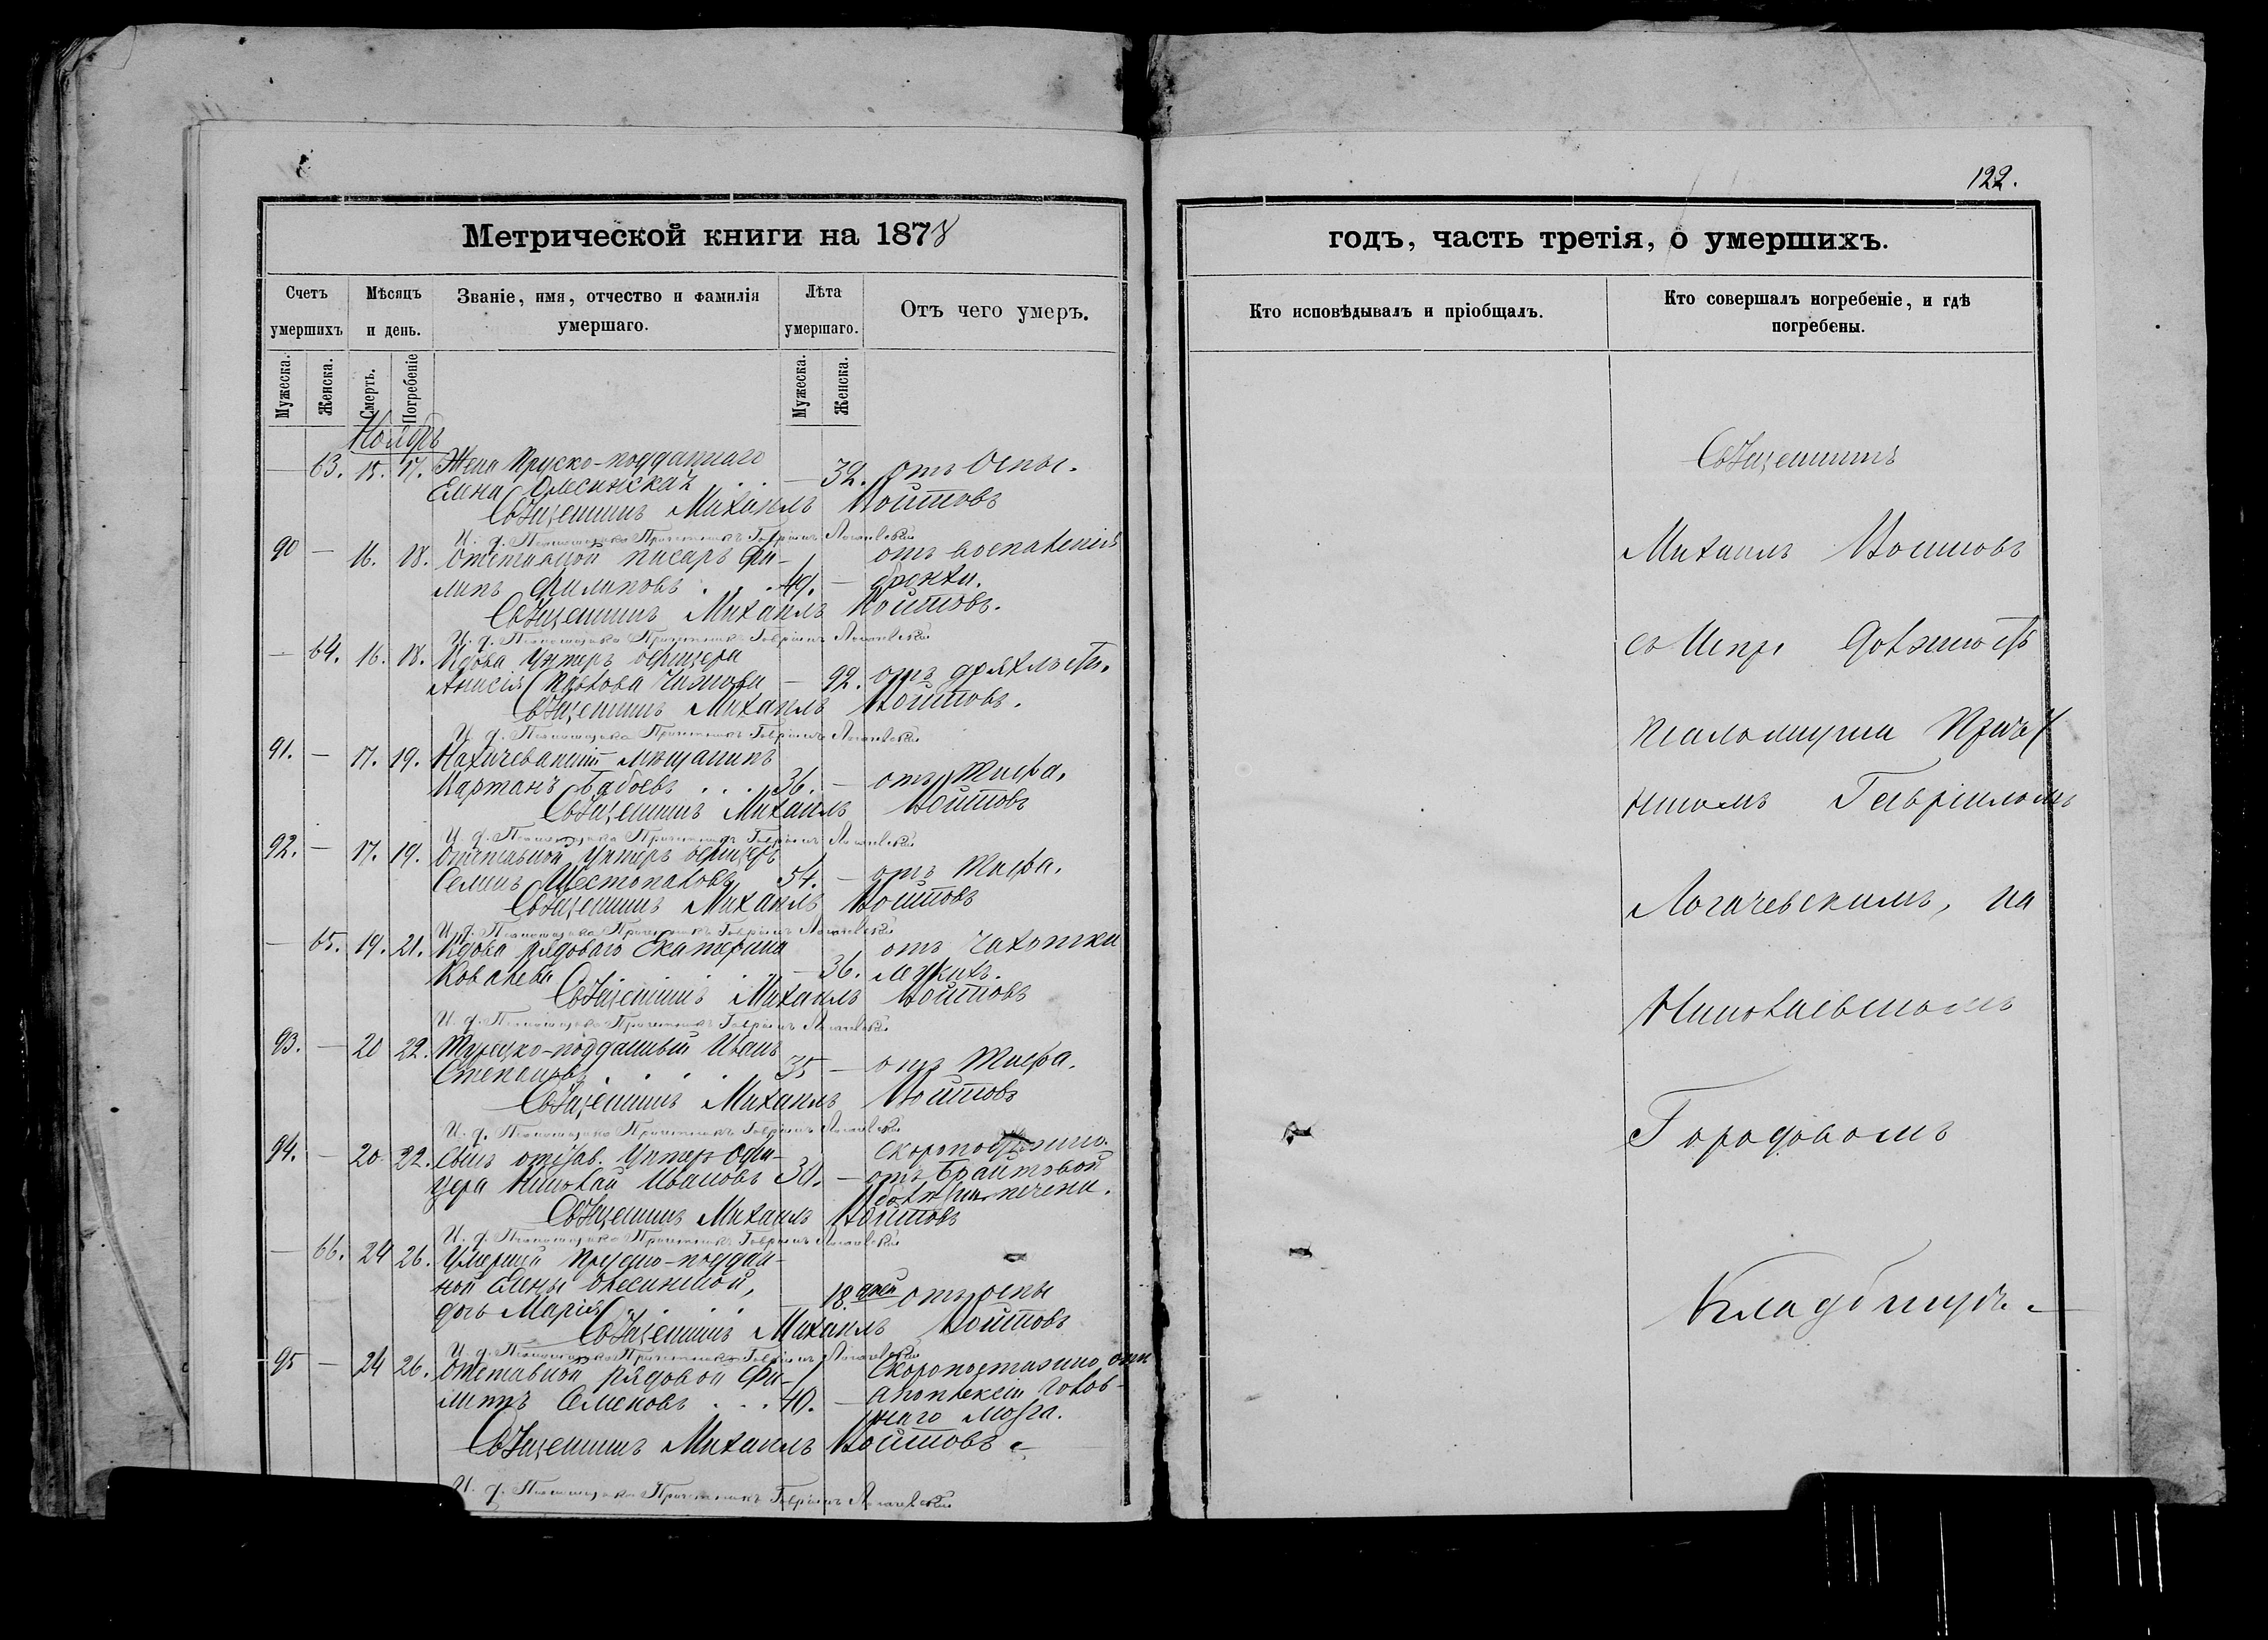 122.
Метрической книги на 1878
годъ, часть третія, о умершихъ.
Счетъ умершихъ
Мѣсяцъ и день.
Званіе, имя, отчество и фамилія умершаго.
Лѣта умершаго.
Отъ чего умеръ.
Кто исповѣдывалъ и пріобщалъ.
Кто совершалъ погребеніе, и гдѣ погребены.
Мужеска. Женска. Смерть. Погребеніе Мужеска. Женска.
Ноябрь
— 63. 15. 17. Жена Пруско-подданнаго — 32. отъ Оспы.
Елена Олесинская
Священникъ Михаилъ Войтовъ
И. д. Псаломщика Причетникъ Гавріилъ Логачевскій
90 — 16. 18. Отставной писарь Фи- отъ воспаленія
липъ Филиповъ 49. — бронхи.
Священникъ Михаилъ Войтовъ.
И. д. Псаломщика Причетникъ Гавріилъ Логачевскій
— 64. 16. 18. Вдова Унтеръ офицера
Анисія Павлова — 92. отъ дряхлости.
Священникъ Михаилъ Войтовъ.
И. д. Псаломщика Причетникъ Гавріилъ Логачевскій
91. — 17. 19. Нахичеванскій мѣщанинъ
Вартанъ Бабоевъ 36. — отъ Тифа.
Священникъ Михаилъ Войтовъ
И. д. Псаломщика Причетникъ Гавріилъ Логачевскій
92. — 17. 19. Отставной Унтеръ офицеръ
Семенъ Шестопаловъ 54. — отъ Тифа.
Священникъ Михаилъ Войтовъ
И. д. Псаломщика Причетникъ Гавріилъ Логачевскій
— 65. 19. 21. Вдова рядоваго Екатерина отъ чахотки
Ковалева — 36. легкихъ.
Священникъ Михаилъ Войтовъ
И. д. Псаломщика Причетникъ Гавріилъ Логачевскій
93. — 20 22. Турецко-подданный Иванъ
Степановъ 35 — отъ Тифа.
Священникъ Михаилъ Войтовъ
И. д. Псаломщика Причетникъ Гавріилъ Логачевскій
94. — 20. 22. Сынъ отстав. Унтеръ Офи- Скоропостижно
цера Николай Ивановъ 30. — отъ Брайтовой
болѣзни печени.
Священникъ Михаилъ Войтовъ
И. д. Псаломщика Причетникъ Гавріилъ Логачевскій
— 66. 24 26. Умершей Пруско-поддан-
ной Елены Олесинской,
дочь Марія — 18. дней отъ оспы
Священникъ Михаилъ Войтовъ
И. д. Псаломщика Причетникъ Гавріилъ Логачевскій
95 — 24 26. Отставной рядовой Фи- Скоропостижно отъ
липъ Семеновъ 40. — апоплексіи голов-
наго мозга.
Священникъ Михаилъ Войтовъ
И. д. Псаломщика Причетникъ Гавріилъ Логачевскій
Священникъ
Михаилъ Войтовъ
съ Испр. должность
псаломщика Приче-
тникомъ Гавріиломъ
Логачевскимъ, на
Николаевскомъ
Городовомъ
Кладбищѣ.